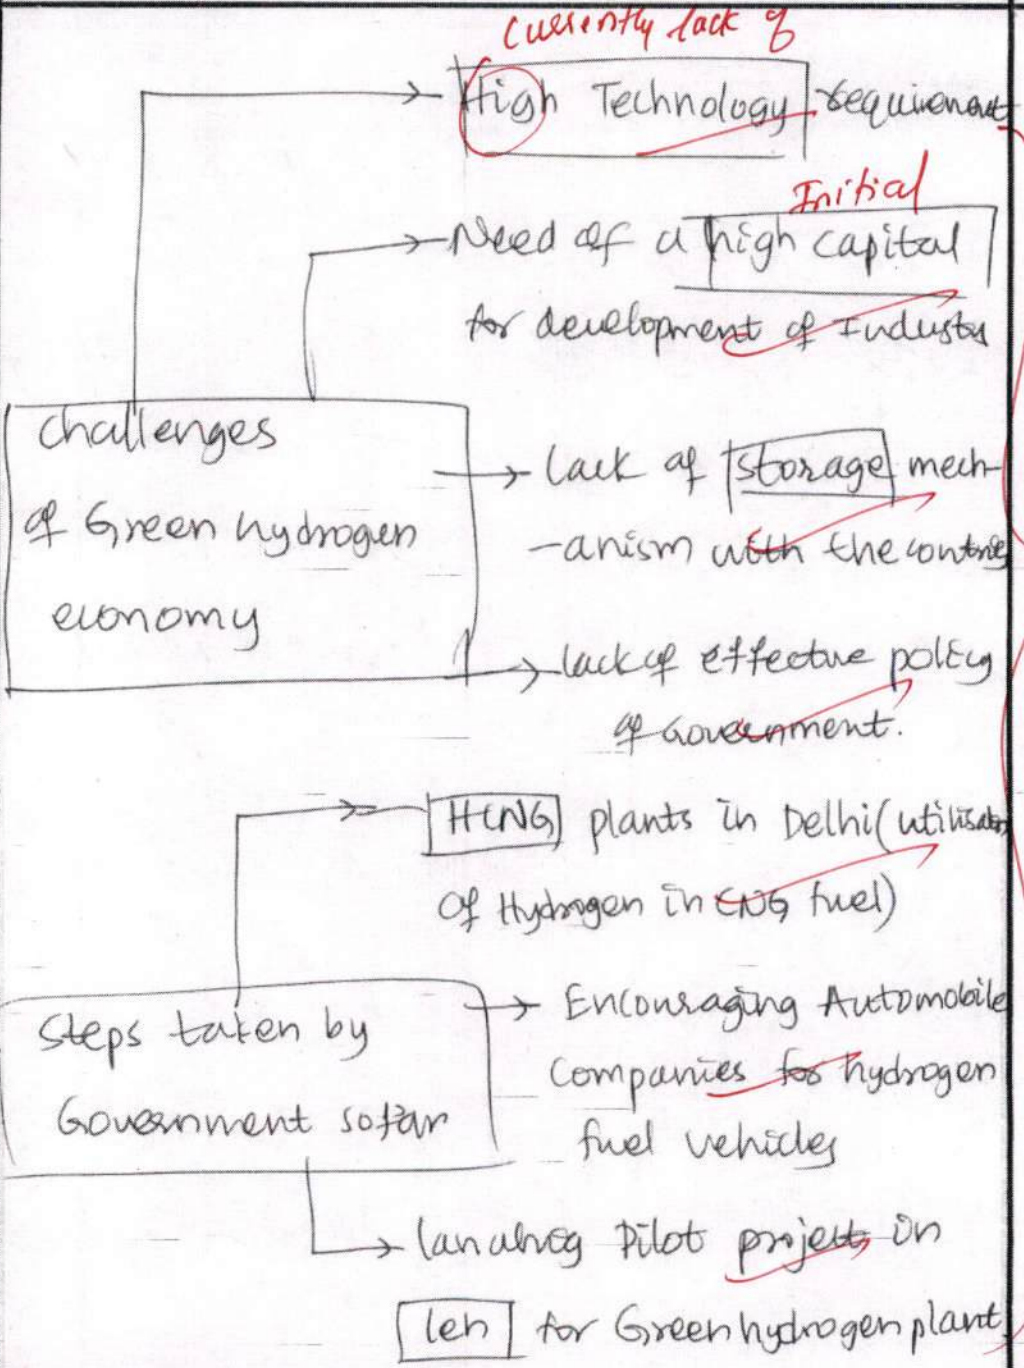 Currently lack of
High Technology requirement
Initial
Need of a high capital
for development of Industry
challenges
of Green hydrogen
economy
lack of storage mech-
-anism with the
lack of effective policy
of Government.
HCNG plants in Delhi (utilisation
of Hydrogen in CNG fuel)
Steps taken by
Government sofar
Encouraging Automobile
Companies for hydrogen
fuel vehicles
Pilot project in
leh for Green hydrogen plant